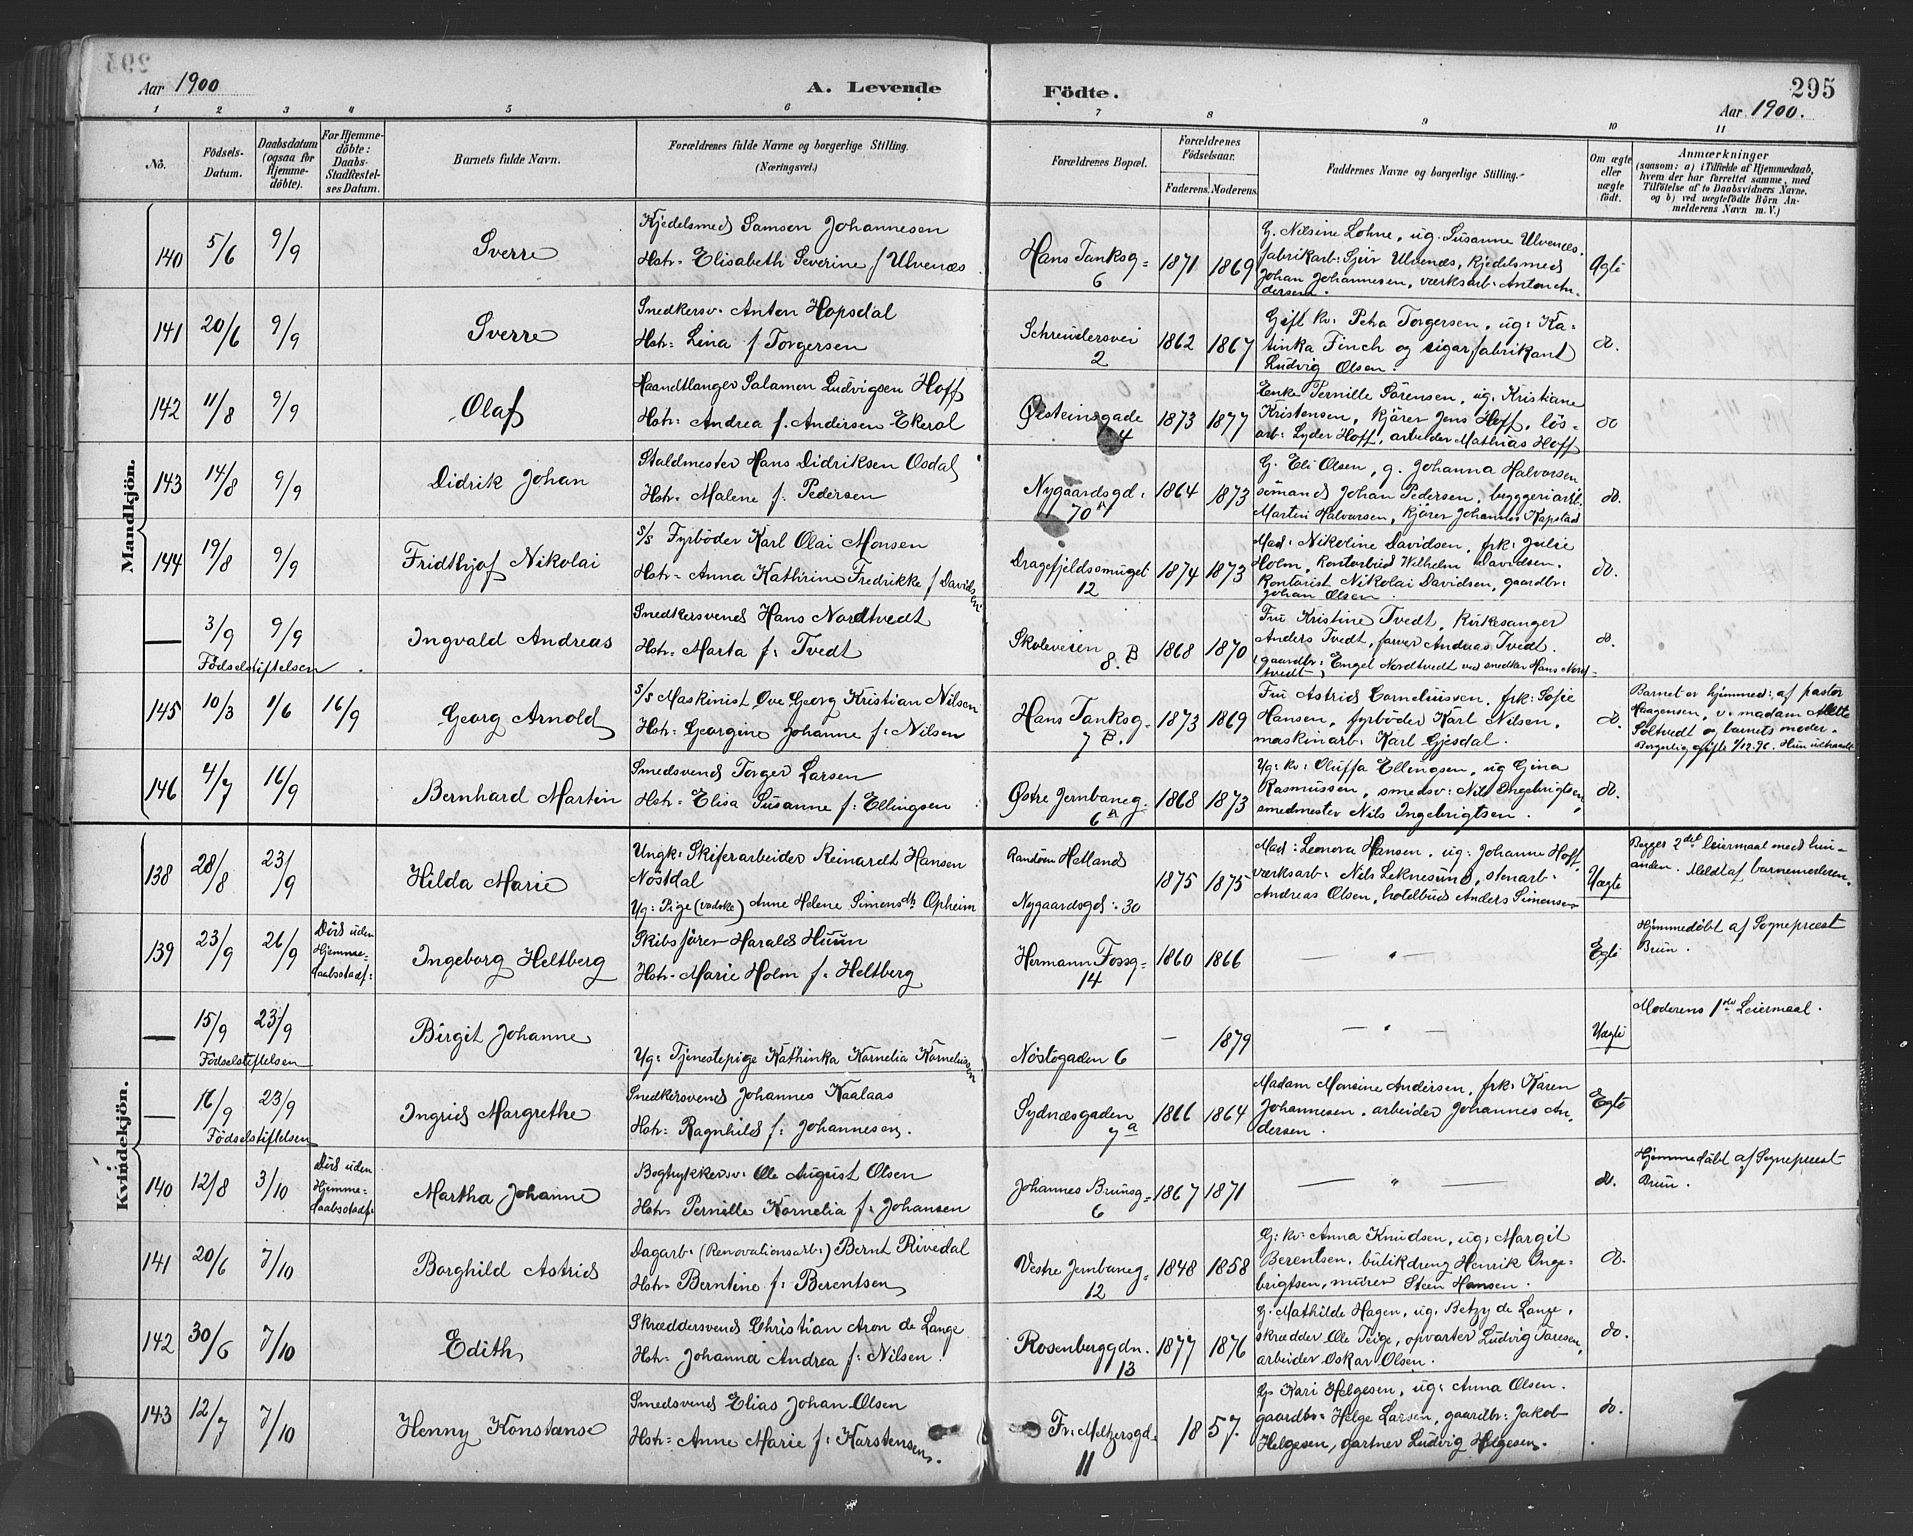 295
Aar 1900
A. Levende Födte.
Aar 1900.
1 2 3 4 5 6 7 8 9 10 11
No.
Födsels-Datum.
Daabsdatum (ogsaa for Hjemmedöbte).
For Hjemmedöbte: Daabs-Stadfæstelses Datum.
Barnets fulde Navn.
Forældrenes fulde Navne og borgerlige Stilling.
(Næringsvei.)
Forældrenes Bopæl.
Forældrenes Födselsaar.
Faderens. Moderens.
Faddernes Navne og borgerlige Stilling.
Om ægte eller uægte födt.
Anmærkninger
(saasom: a) i Tilfælde af Hjemmedaab, hvem der har forrettet samme, med Tilföielse af to Daabsvidners Navne, og b) ved uægtefödte Börn Anmelderens Navn m. V.)
Mandkjön.
140 5/6 9/9 Sverre
Kjedelsmed Samson Johannesen
Hstr: Elisabeth Severine f Ulvenæs
Hans Tanksg= 6 1871 1869
G. Nilsine Lohne, ug. Susanne Ulvenæs,
fabrikarb: Sjur Ulvenæs, kjedelsmed
Johan Johannesen, værksarb: Anton An-
dersen.
Ægte
141 20/6 9/9 Sverre
Snedkersv. Anton Hopsdal
Hstr: Lina f Torgersen
Schreudersvei 2 1862 1867
Gift kv: Petra Torgersen, ug: Ka-
tinka Finch og sigarfabrikant
Ludvig Olsen.
do.
142 11/8 9/9 Olaf
Haandtlanger Salamon Ludvigsen Hoff
Hstr: Andrea f. Andersen Ekerol
Øisteinsgade 4 1873 1877
Enke Pernille Sörensen, ug: Kristiane
Kristensen, kjörer Jens Hoff, lös-
arb: Lyder Hoff, arbeider Mathias Hoff
do
143 14/8 9/9 Didrik Johan
Staldmester Hans Didriksen Osdal
Hstr: Malene f. Pedersen
Nygaardsgd: 70 A 1864 1873
G. Eli Olsen, g. Johanna Halvorsen,
sömand Johan Pedersen, byggeriarb.
Martin Halvorsen, kjörer Johannes Kapstad
do.
144 19/8 9/9 Fridthjof Nikolai
S/S Fyrböder Karl Olai Monsen
Hstr: Anna Kathrine Fredrikke f Davidsen
Dragefjeldssmuget 12 1874 1873
Mad: Nikoline Davidsen, frk: Julie
Holm, Kontorbud Wilhelm Davidsen,
Kontorist Nikolai Davidsen, gaardbr:
Johan Olsen.
do.
— 3/9 9/9 Ingvald Andreas
Födselstiftelsen.
Snedkersvend Hans Nordtvedt
Hstr: Marta f: Tvedt
Skoleveien 8. B 1868 1870
Fru Kristine Tvedt, Kirksanger
Anders Tvedt, farver Andreas Tvedt.
(gaardbr: Engel Nordtvedt ved snedker Hans Nord-
tvedt)
do.
145 10/3 1/6 16/9 Georg Arnold
S/S Maskinist Ove Georg Kristian Nilsen
Hstr: Georgine Johanne f: Nilsen
Hans Tanksg= 7 B. 1873 1869
Fru Astrid Corneliussen, frk: Sofie
Hansen, fyrböder Karl Nilsen,
maskinarb: Karl Gjesdal.
do.
Barnet er hjemmed: af pastor
Haagensen, v. madam Mette
Soltvedt og barnets moder.
146 4/7 16/9 Bernhard Martin
Smedsvend Torger Larsen
Hstr: Elisa Susanne f: Ellingsen
Østre Jernbaneg. 6 A 1868 1873
Ug: kv: Oluffa Ellingsen, ug Gina
Rasmussen, smedsv: Nils Ingebrigtsen,
smedmester Nils Ingebrigtsen.
do.
Kvindekjön.
138 28/8 23/9 Hilda Marie
Ungk: Skiferarbeider Reinardt Hansen
Nöstdal
Ug: Pige (vadske) Anne Helene Simonsdtr Opheim
Randöen Hetland
Nygaardsgd: 30
1875 1875
Mad: Leonora Hansen, ug: Johanne Hoff,
værksarb: Nils Lekresund, stenarb:
Andreas Olsen, hotelbud Anders Simonsen
Uægte
Begges 2det leiermaal med hin-
anden. Meldt af barnemoderen.
139 23/9 26/9 Död uden Hjemme-daabsstadf: Ingeborg Heltberg
Skibsförer Harald Huun
Hstr. Marie Holm f: Heltberg
Hermann Fossg= 14 1860 1866
— " —
Egte
Hjemmedöbt af Sognepræst
Brun.
— 15/9 23/9 Birgit Johanne
Födselstiftelsen
Ug: Tjenestepige Kathinka Kornelia Korneliussen
Nöstegaden 6 — 1879
— " —
Uægte
Moderens 1ste Leiermaal.
— 16/9 23/9 Ingrid Margrethe
Födselstiftelsen
Snedkersvend Johannes Kaalaas
Hstr: Ragnhild f: Johannesen.
Sydnæsgaden 7 a 1866 1864
Madam Monsine Andersen, frk: Karen
Johannesen, arbeider Johannes An-
dersen.
Egte
140 12/8 3/10 Död uden Hjemme-daabsstadf: Martha Johanne
Bogtrykkersv: Ole August Olsen
Hstr: Pernille Kornelia f: Johansen
Johannes Brunsg= 6 1867 1871
— " —
do.
Hjemmedöbt af Sognepræst
Brun.
141 20/6 7/10 Borghild Astrid
Dagarb: (Renovationsarb:) Bernt Rivedal
Hstr: Berntine f: Berentsen
Vestre Jernbaneg= 12 1848 1858
G: kv: Anna Knudsen, ug: Margit
Berentsen, butikdreng Henrik Inge-
brigtsen, murer Steen Hansen.
do.
142 30/6 7/10 Edith
Skræddersvend Christian Aron de Lange
Hstr: Johanna Andrea f: Nilsen.
Rosenberggdn. 13 1877 1876
G. Mathilde Hagen, ug: Betzy de Lange,
skrædder Ole Teige, opvarter Ludvig Taresen,
arbeider Oskar Olsen.
do.
143 12/7 7/10 Henny Konstanse
Smedsvend Elias Johan Olsen
Hstr: Anne Marie f: Karstensen.
Fr: Meltzersgd. 11 1857.
G. Kari Helgesen, ug: Anna Olsen.
gaardbr: Helge Larsen, gaardbr: Jakob
Helgesen, gartner Ludvig Helgesen.
do.